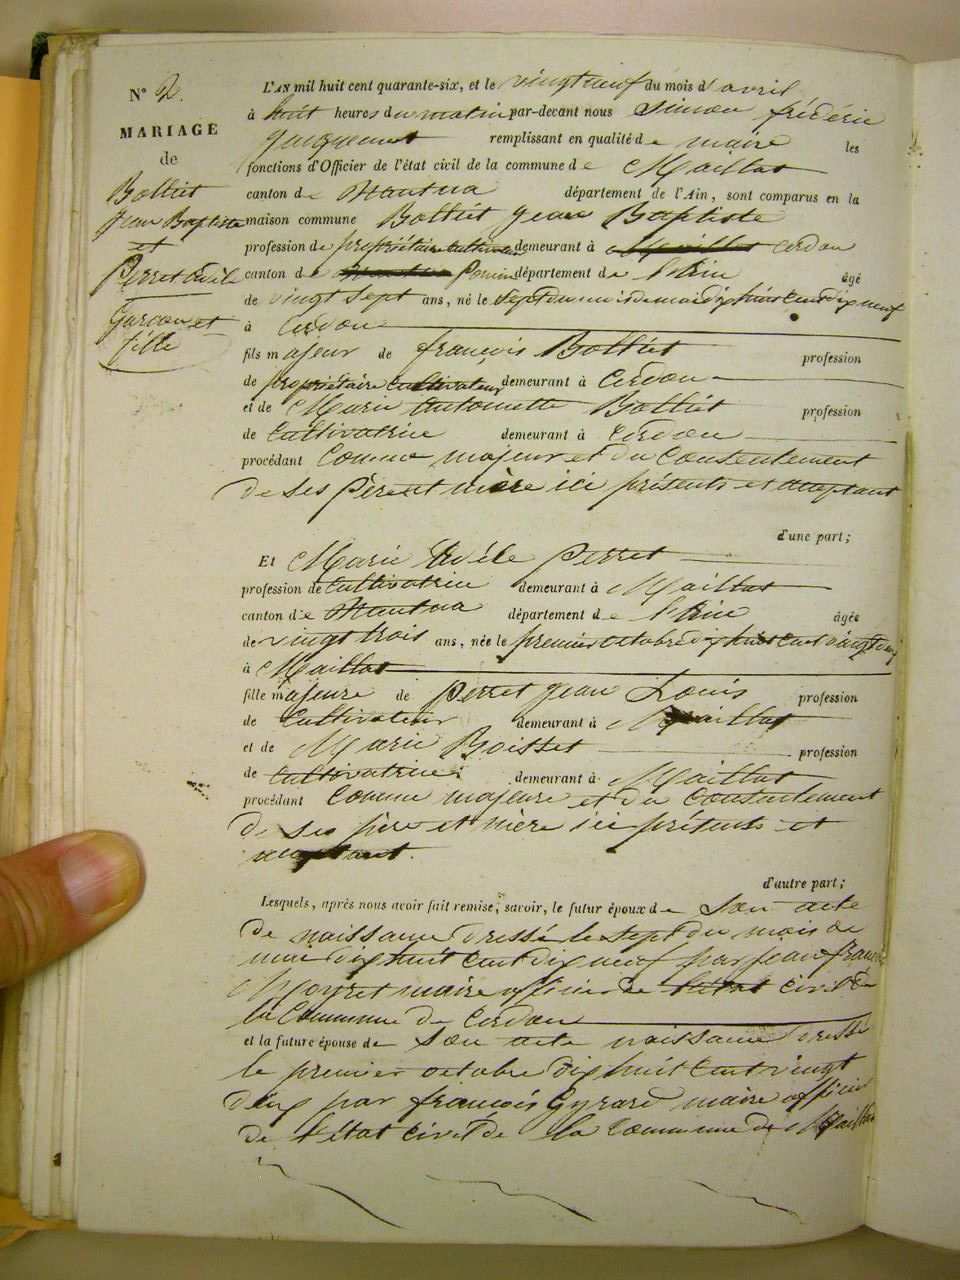 N° 2.
MARIAGE
de
Bolliet
Jean Baptiste
et
Perret Adèle
Garçon et
fille
L'AN mil huit cent quarante-six, et le vingt neuf du mois d'avril
à huit heures du matin par-devant nous Simon frédéric
Jacquemet remplissant en qualité de maire les
fonctions d'Officier de l'état civil de la commune de Maillat
canton de Nantua département de l'Ain, sont comparus en la
maison commune Bolliet Jean Baptiste
profession de propriétaire cultivateur demeurant à Cerdon
canton de Poncin département de l'Ain âgé
de vingt sept ans, né le sept du mois de mai dix huit cent dix neuf
à Cerdon
fils majeur de françois Bolliet profession
de propriétaire cultivateur demeurant à Cerdon
et de Marie Antoinette Bolliet profession
de Cultivatrice demeurant à Cerdon
procédant comme majeur et du consentement
de ses père et mère ici présents et acceptant
d'une part;
Et Marie Adéle Perret
profession de Cultivatrice demeurant à Maillat
canton de Nantua département de l'Ain âgée
de vingt trois ans, née le premier octobre dix huit cent vingt deux
à Maillat
fille majeure de perret jean Louis profession
de Cultivateur demeurant à Maillat
et de Marie Boisset profession
de Cultivatrice demeurant à Maillat
procédant comme majeure et du consentement
de ses père et mère ici présents et
acceptant.
d'autre part;
Lesquels, après nous avoir fait remise, savoir, le futur époux de Son acte
de naissance dressé le sept du mois de
mai dix huit cent dix neuf par jean françois
maire officier de l'état civil de
la Commune de Cerdon
et la future épouse de Son acte naissance dressé
le premier octobre dix huit cent vingt
deux par françois Gyrard maire officier
de l'état civil de la Commune de Maillat